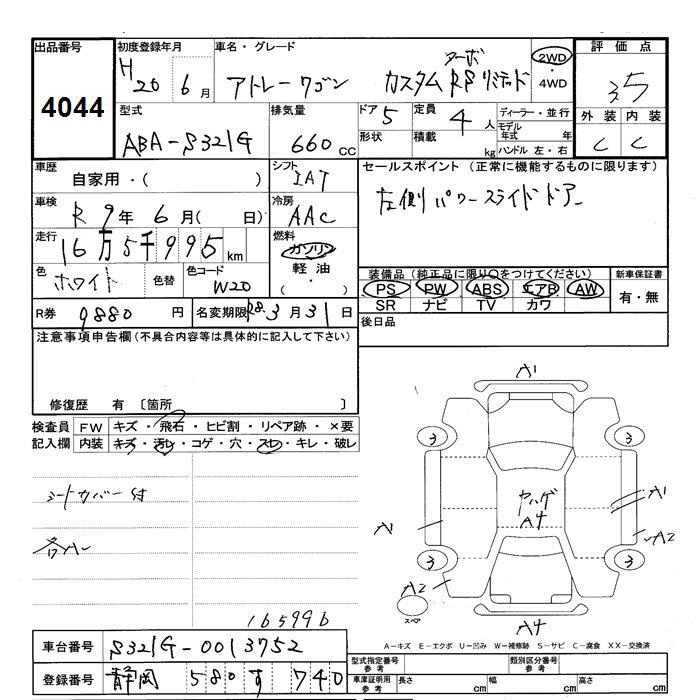 出品番号
4044
初度登録年月
H20 6月
車名・グレード
アトレーワゴン カスタム ターボ RSリミテッド
2WD
・
4WD
評価点
3.5
外装 内装
C C
型式
ABA-S321G
排気量
660cc
ドア 5
形状
定員 4人
積載 kg
ディーラー・並行
モデル年式 年
ハンドル 左・右
車歴
自家用・( )
シフト
IAT
セールスポイント(正常に機能するものに限ります)
左側パワースライドドアー
車検
R 9年 6月( 日)
冷房
AAC
走行
16万5千995km
燃料
ガソリン
軽油
( ・ )
色
ホワイト
色替
色コード
W20
装備品(純正品に限り○をつけてください)
PS PW ABS エアB AW
SR ナビ TV カワ
新車保証書
有・無
R券 9880円
名変期限 R8.3月31日
後日品
注意事項申告欄(不具合内容等は具体的に記入して下さい)
修復歴 有〔箇所 〕
検査員記入欄
FW キズ・飛石・ヒビ割・リペア跡・×要
内装 キズ・汚レ・コゲ・穴・スレ・キレ・破レ
シートカバー付
165996
A1
3 3
ヤハゲ
A4
A1
A1
A2
3 3
A2
スペア
A4
A-キズ E-エクボ U-凹み W-補修跡 S-サビ C-腐食 XX-交換済
車台番号 S321G-0013752
登録番号 静岡 580 す 740
型式指定番号 参考
類別区分番号 参考
車庫証明用 参考
長さ cm 幅 cm 高さ cm